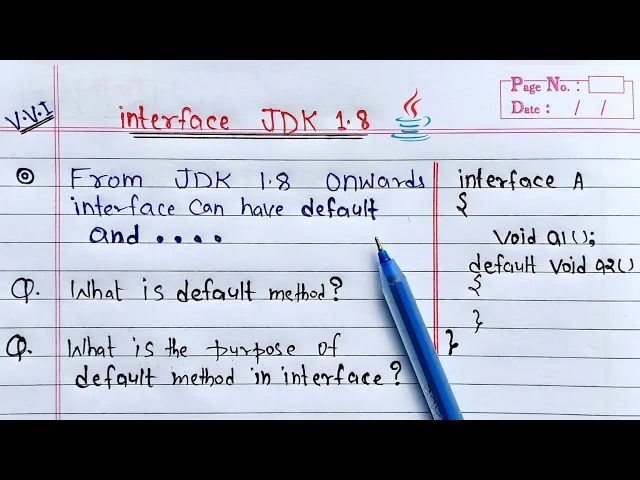 Page No. :
Date : / /
V.V.I
interface JDK 1.8
From JDK 1.8 onwards
interface can have default
and ....
Q. What is default method?
Q. What is the purpose of
default method in interface?
interface A
{
void a1();
default void a2()
{
}
}